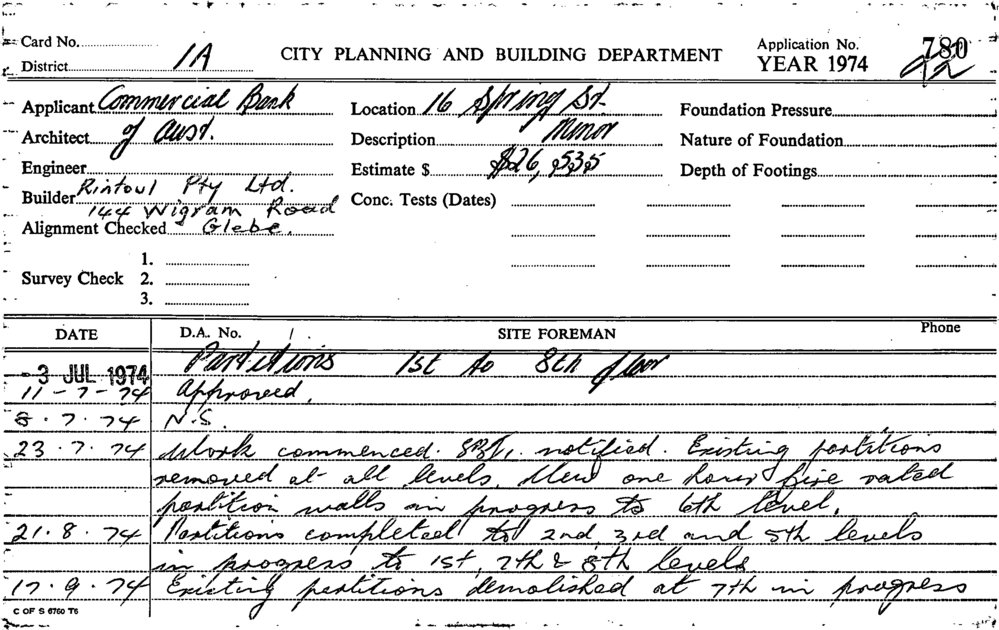 Card No. Application No. 780
District 1A CITY PLANNING AND BUILDING DEPARTMENT YEAR 1974 92
Applicant Commercial Bank Location 16 Spring St. Foundation Pressure
Architect of Aust. Description Minor Nature of Foundation
Engineer Estimate $ $26,535 Depth of Footings
Builder Rintoul Pty Ltd. Conc. Tests (Dates)
144 Wigram Road
Alignment Checked Glebe.
1.
Survey Check 2.
3.
DATE D.A. No. SITE FOREMAN Phone
-3 JUL 1974 Partitions 1st to 8th floor
11-7-74 Approved.
8.7.74 N.S.
23.7.74 Work commenced. notified. Existing partitions
removed at all levels. New one hour fire rated
partition walls in progress to 6th level.
21.8.74 Partitions completed to 2nd, 3rd and 5th levels
in progress to 1st, 7th & 8th levels
17.9.74 Existing partitions demolished at 7th in progress
C OF S 6760 T6